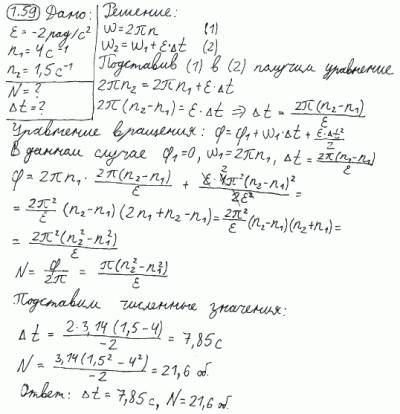 1.59 Дано: Решение:
ε = -2 рад/с² ω = 2πn (1)
n₁ = 4 с⁻¹ ω₂ = ω₁ + ε·Δt (2)
n₂ = 1,5 с⁻¹ Подставив (1) в (2) получим уравнение
N = ? 2πn₂ = 2πn₁ + ε·Δt
Δt = ? 2π(n₂-n₁) = ε·Δt ⇒ Δt = 2π(n₂-n₁)/ε
Уравнение вращения: φ = φ₁ + ω₁·Δt + ε·Δt²/2
В данном случае φ₁ = 0, ω₁ = 2πn₁, Δt = 2π(n₂-n₁)/ε
φ = 2πn₁ · 2π(n₂-n₁)/ε + ε·4π²(n₂-n₁)²/2ε² =
= 2π²/ε (n₂-n₁)(2n₁+n₂-n₁) = 2π²/ε (n₂-n₁)(n₂+n₁) =
= 2π²(n₂²-n₁²)/ε
N = φ/2π = π(n₂²-n₁²)/ε
Подставим численные значения:
Δt = 2·3,14(1,5-4)/-2 = 7,85 с
N = 3,14(1,5²-4²)/-2 = 21,6 об.
Ответ: Δt = 7,85 с, N = 21,6 об.